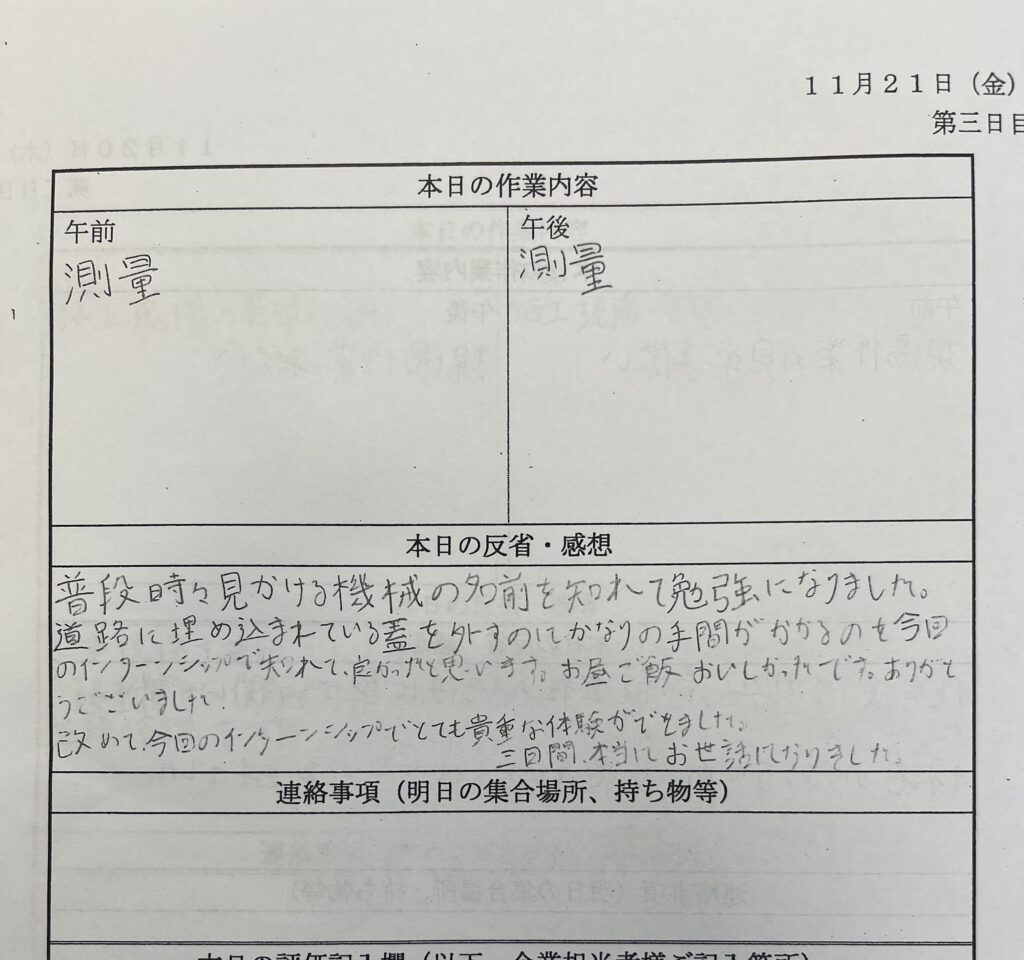 11月21日（金）
第三日目
本日の作業内容
午前
測量
午後
測量
本日の反省・感想
普段時々見かける機械の名前を知れて勉強になりました。
道路に埋め込まれている蓋を外すのにかなりの手間がかかるのを今回
のインターンシップで知れて、良かったと思います。お昼ご飯おいしかったです。ありがと
うございました
改めて、今回のインターンシップでとても貴重な体験ができました。
三日間、本当にお世話になりました。
連絡事項（明日の集合場所、持ち物等）
本日の評価記入欄（以下、企業担当者様ご記入箇所）